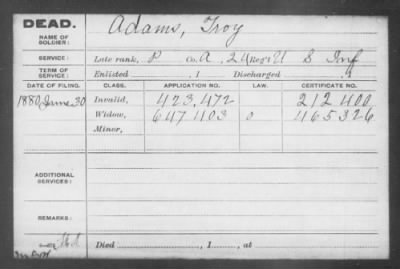 DEAD.
NAME OF
SOLDIER:
Adams, Troy
SERVICE:
Late rank, P Co. A, 24 Reg't U S Inf
TERM OF
SERVICE:
Enlisted , 1 Discharged , 1
DATE OF FILING. CLASS. APPLICATION NO. LAW. CERTIFICATE NO.
1880, June 30 Invalid, 423,472 212 400
Widow, 647403 0 465326
Minor,
ADDITIONAL
SERVICES:
REMARKS:
Died , 1 , at